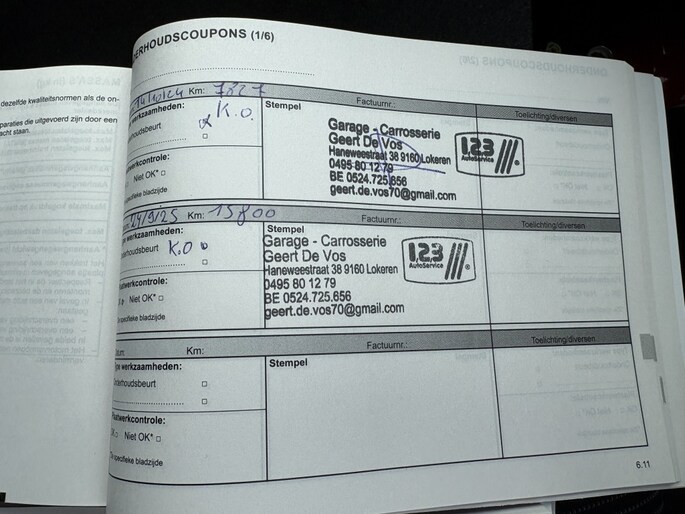 ERHOUDSCOUPONS (1/6)
dezelfde kwaliteitsnormen als de on-
paraties die uitgevoerd zijn door een
acht staan.
14/10/24 Km: 7827 Factuurnr.: Toelichting/diversen
werkzaamheden: K.O.
houdsbeurt
Stempel
Garage - Carrosserie
Geert De Vos
Haneweestraat 38 9160 Lokeren
0495 80 12 79
BE 0524.725.656
geert.de.vos70@gmail.com
1.2.3
AutoService
werkcontrole:
Niet OK*
specifieke bladzijde
24/9/25 Km: 15800 Factuurnr.: Toelichting/diversen
werkzaamheden:
derhoudsbeurt K.O
Stempel
Garage - Carrosserie
Geert De Vos
Haneweestraat 38 9160 Lokeren
0495 80 12 79
BE 0524.725.656
geert.de.vos70@gmail.com
1.2.3
AutoService
aatwerkcontrole:
Niet OK*
specifieke bladzijde
tum Km: Factuurnr.: Toelichting/diversen
pe werkzaamheden:
nderhoudsbeurt
Stempel
aatwerkcontrole:
Niet OK*
e specifieke bladzijde
6.11